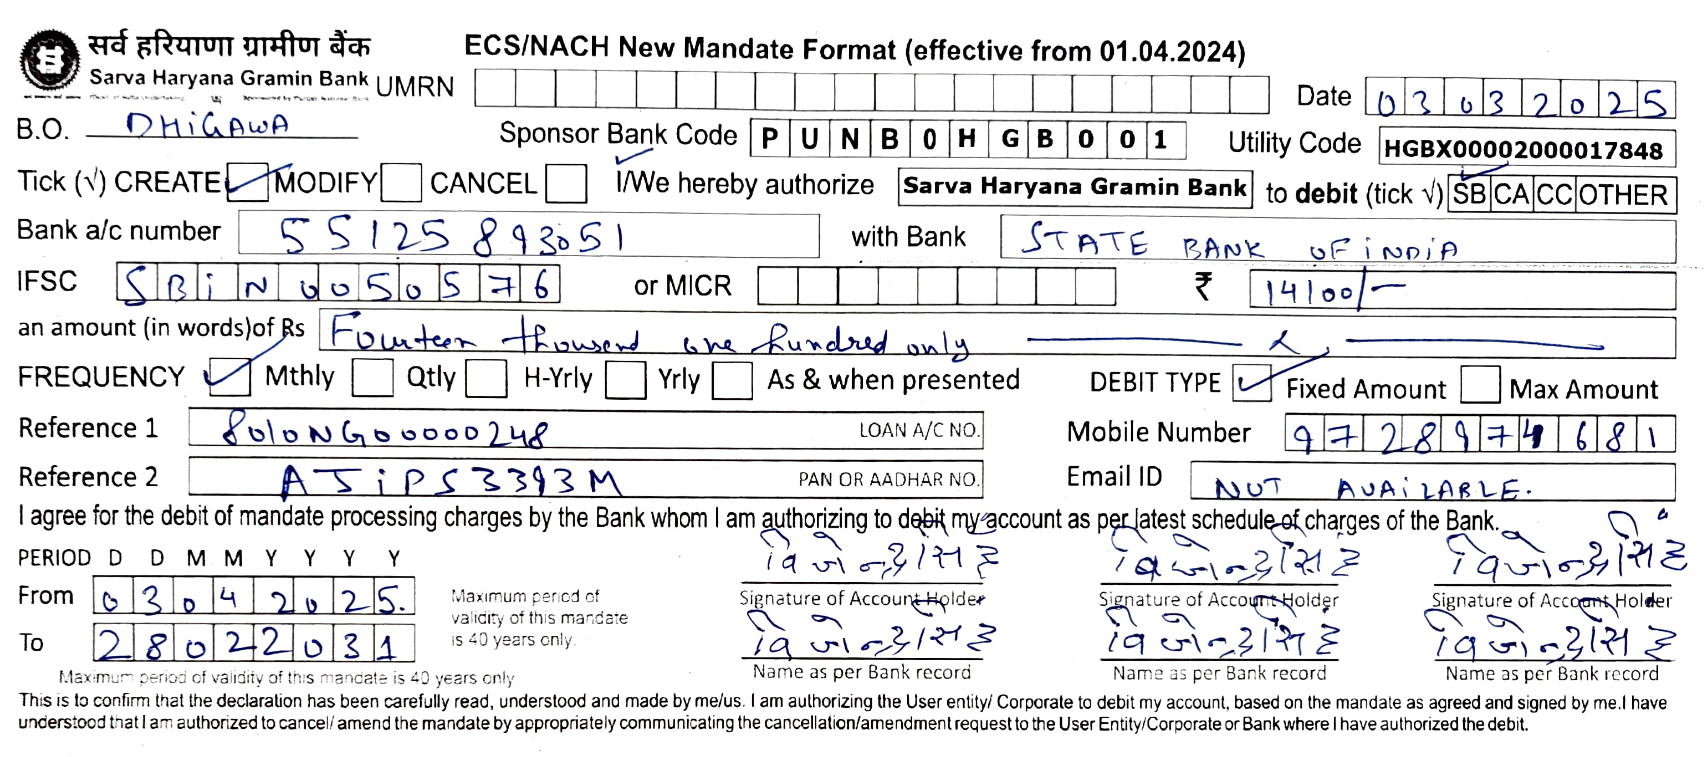 सर्व हरियाणा ग्रामीण बैंक
Sarva Haryana Gramin Bank
ECS/NACH New Mandate Format (effective from 01.04.2024)
UMRN
Date 03032025
B.O. DHIGAWA
Sponsor Bank Code PUNB0HGB001
Utility Code HGBX00002000017848
Tick (√) CREATE MODIFY CANCEL I/We hereby authorize Sarva Haryana Gramin Bank to debit (tick √) SB CA CC OTHER
Bank a/c number 55125893051 with Bank STATE BANK OF INDIA
IFSC SBIN0050576 or MICR ₹ 14100/-
an amount (in words)of Rs Fourteen thousend one hundred only
FREQUENCY Mthly Qtly H-Yrly Yrly As & when presented DEBIT TYPE Fixed Amount Max Amount
Reference 1 8010NG00000248 LOAN A/C NO. Mobile Number 9728974681
Reference 2 AJIPS3393M PAN OR AADHAR NO. Email ID NOT AVAILABLE.
I agree for the debit of mandate processing charges by the Bank whom I am authorizing to debit my account as per latest schedule of charges of the Bank.
PERIOD D D M M Y Y Y Y
From 03042025.
To 28022031
Maximum period of
validity of this mandate
is 40 years only.
Signature of Account Holder Signature of Account Holder Signature of Account Holder
Name as per Bank record Name as per Bank record Name as per Bank record
Maximum period of validity of this mandate is 40 years only
This is to confirm that the declaration has been carefully read, understood and made by me/us. I am authorizing the User entity/ Corporate to debit my account, based on the mandate as agreed and signed by me.I have
understood that I am authorized to cancel/ amend the mandate by appropriately communicating the cancellation/amendment request to the User Entity/Corporate or Bank where I have authorized the debit.